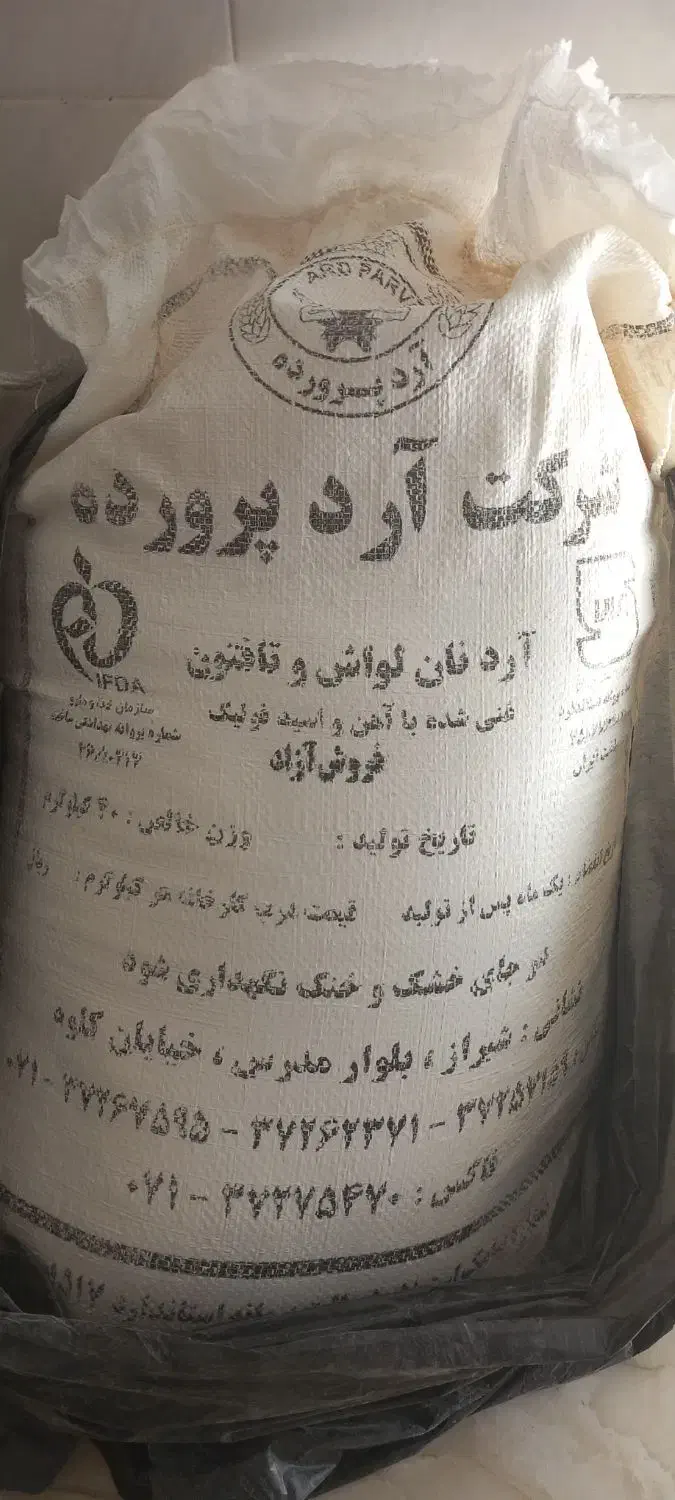 ARD PARV
آرد پرورده
شرکت آرد پرورده
آرد نان لواش و تافتون
غنی شده با آهن و اسید فولیک
فروش آزاد
IFDA
سازمان غذا و دارو
شماره پروانه بهداشتی ساخت
تاریخ تولید : وزن خالص : ۴۰ کیلوگرم
یک ماه پس از تولید قیمت درب کارخانه هر کیلوگرم : ریال
در جای خشک و خنک نگهداری شود
نشانی : شیراز ، بلوار مدرس ، خیابان کاوه
۳۷۲۶۲۳۷۱ - ۳۷۲۶۷۵۹۵ - ۰۷۱
فاکس : ۳۷۲۷۵۴۷۰ - ۰۷۱
استاندارد ۱۵۱۷